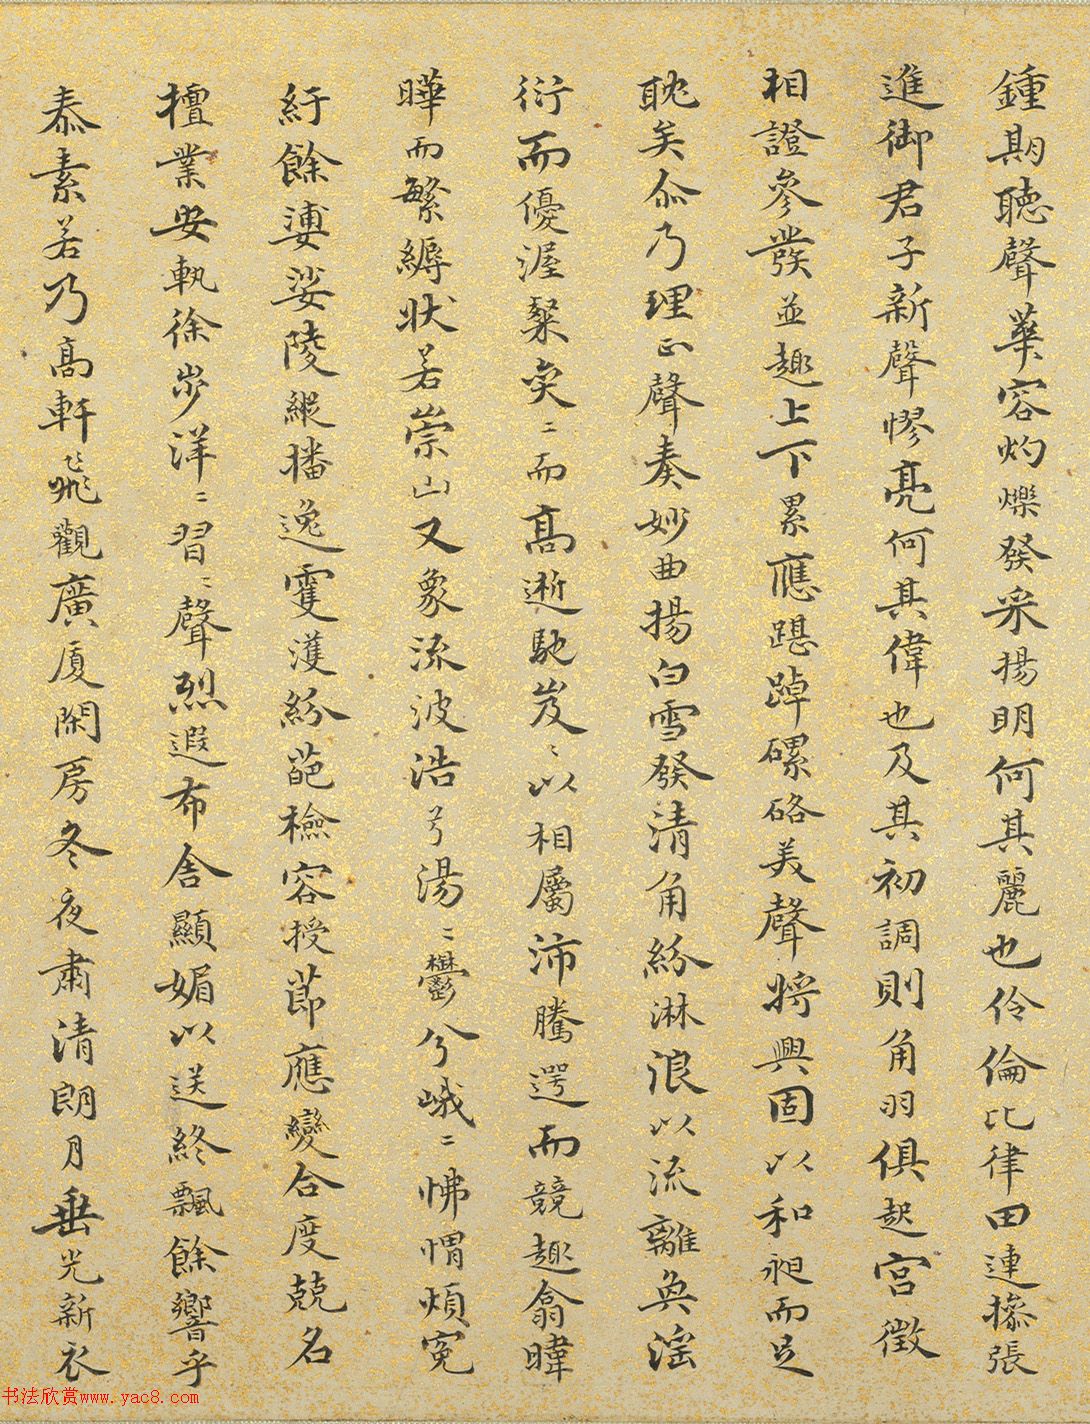 鍾期聽聲華容灼爍發采揚明何其麗也伶倫比律田連操張
進御君子新聲憀亮何其偉也及其初調則角羽俱起宮徵
相證參發並趣上下累應踸踔磥硌美聲將興固以和昶而足
耽矣尒乃理正聲奏妙曲揚白雪發清角紛淋浪以流離奐淫
衍而優渥粲奕〻而高逝馳岌〻以相屬沛騰遌而競趣翕暐
曄而繁縟狀若崇山又象流波浩兮湯〻鬱兮峨〻怫愲煩冤
紆餘婆娑陵縱播逸霍濩紛葩檢容授節應變合度兢名
擅業安軌徐步洋〻習〻聲烈遐布含顯媚以送終飄餘響乎
泰素若乃高軒飛觀廣厦閑房冬夜肅清朗月垂光新衣
书法欣赏www.yac8.com